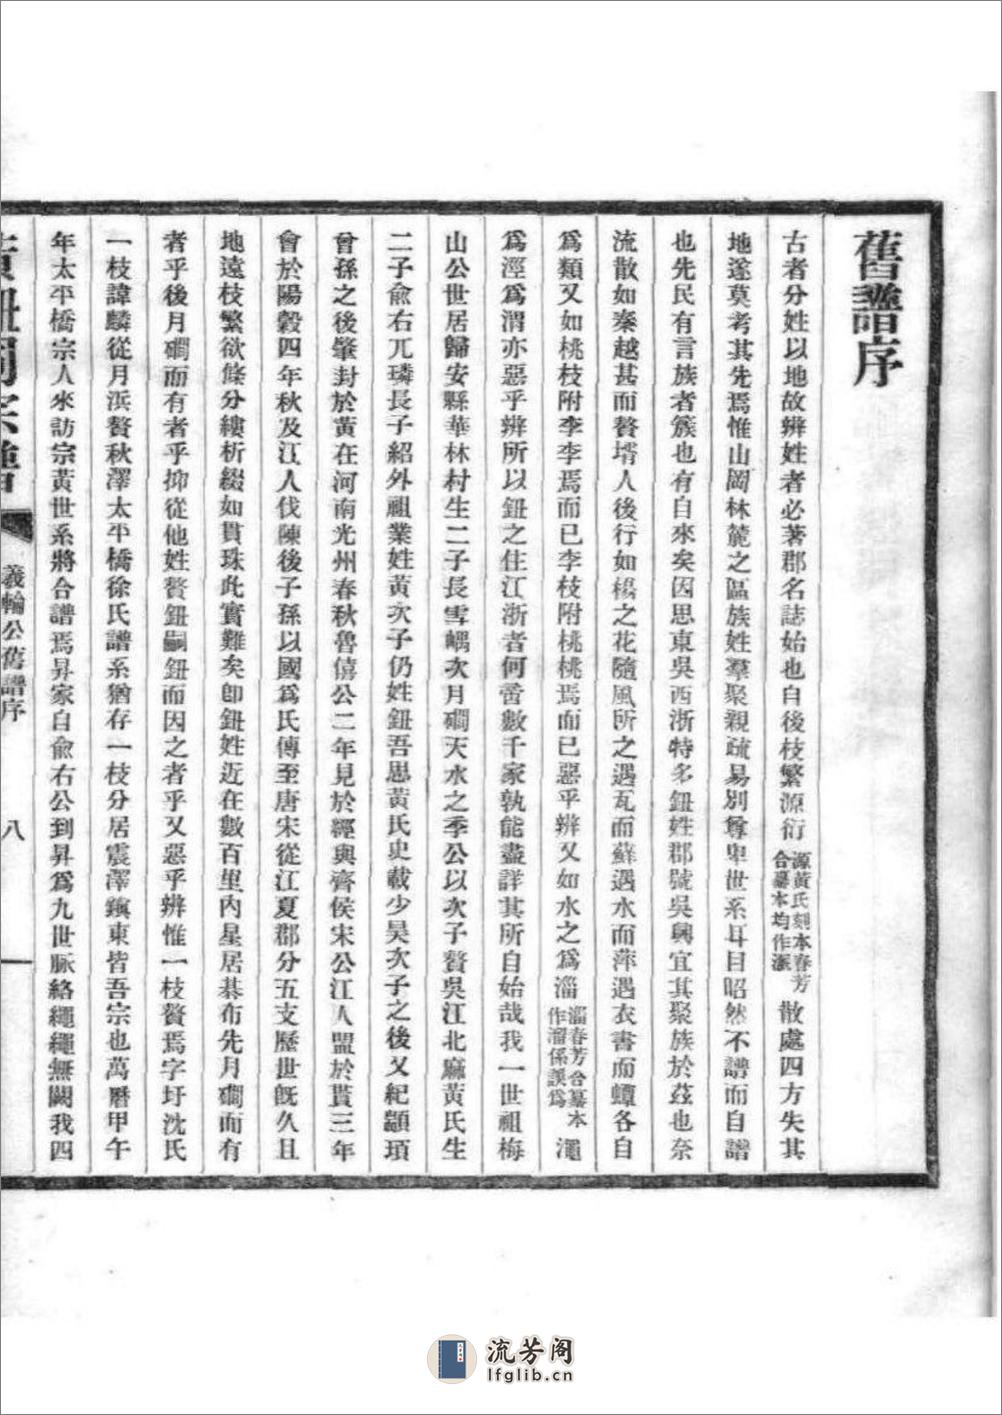 舊譜序
古者分姓以地故辨姓者必著郡名誌始也自後枝繁源衍源黃氏刻本春芳合纂本均作派散處四方失其
地遂莫考其先焉惟山岡林麓之區族姓羣聚親疏易別尊卑世系耳目昭然不譜而自譜
也先民有言族者簇也有自來矣因思東吳西浙特多鈕姓郡號吳興宜其聚族於茲也奈
流散如秦越甚而贅壻人後行如楊之花隨風所之遇瓦而蘇遇水而萍遇衣書而蟫各自
爲類又如桃枝附李李焉而已李枝附桃桃焉而已惡乎辨又如水之爲淄淄春芳合纂本作溜係誤爲澠
爲涇爲渭亦惡乎辨所以鈕之住江浙者何啻數千家孰能盡詳其所自始哉我一世祖梅
山公世居歸安縣華林村生二子長雪嵎次月磵天水之季公以次子贅吳江北麻黃氏生
二子俞右兀璘長子紹外祖業姓黃次子仍姓鈕吾思黃氏史載少昊次子之後又紀顓頊
曾孫之後肇封於黃在河南光州春秋魯僖公二年見於經與齊侯宋公江人盟於貫三年
會於陽穀四年秋及江人伐陳後子孫以國爲氏傳至唐宋從江夏郡分五支歷世旣久且
地遠枝繁欲條分縷析綴如貫珠此實難矣卽鈕姓近在數百里內星居碁布先月磵而有
者乎後月磵而有者乎抑從他姓贅鈕嗣鈕而因之者乎又惡乎辨惟一枝贅焉字圩沈氏
一枝諱麟從月浜贅秋澤太平橋徐氏譜系猶存一枝分居震澤鎭東皆吾宗也萬曆甲午
年太平橋宗人來訪宗黃世系將合譜焉昇家自俞右公到昇爲九世脈絡繩繩無闕我四
義輪公舊譜序
八
流芳阁
lfglib.cn